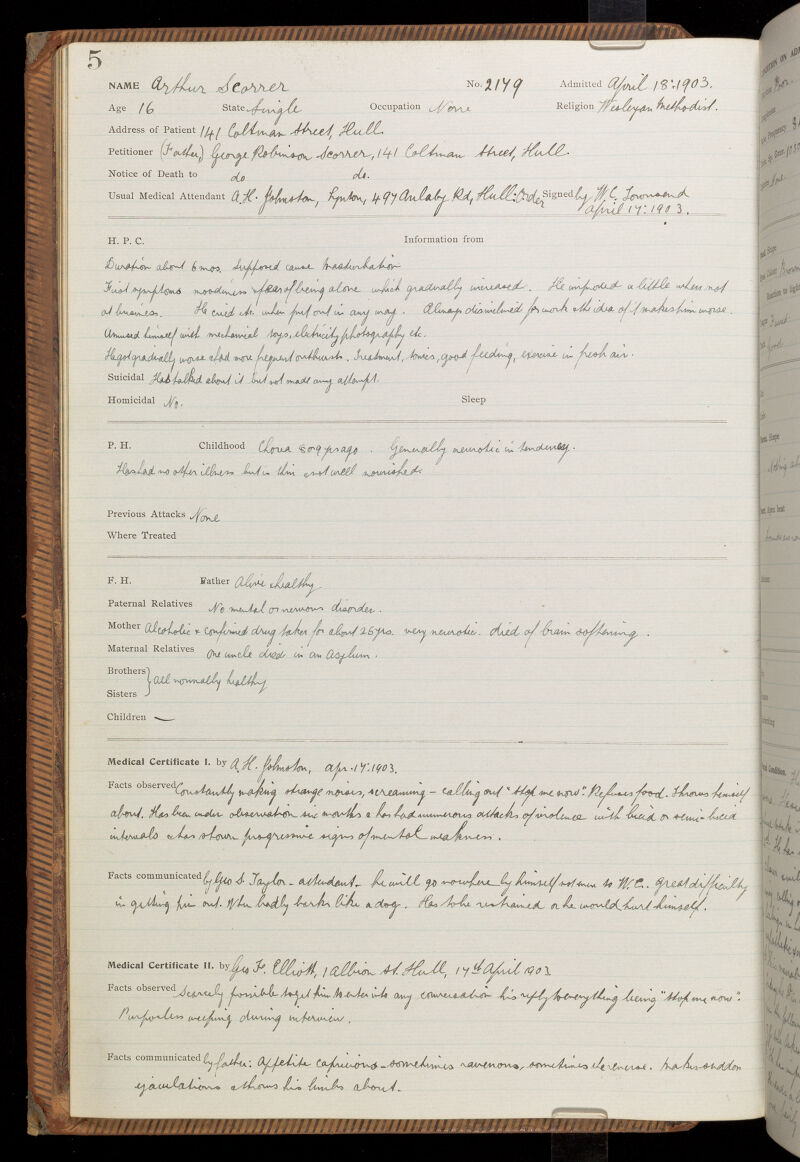 5
NAME Arthur Scorrer No. 2179 Admitted April 18: 1903.
Age 16 State Single Occupation None Religion Wesleyan Methodist.
Address of Patient 141 Coltman Street, Hull
Petitioner (Father) George Robinson Scorrer, 141 Coltman Street, Hull.
Notice of Death to do do.
Usual Medical Attendant A.H. Johnston, Lynton, 497 Anlaby Rd, Hull: Order Signed by W.C. Townsend
April 17: 1903.
H. P. C. Information from
Duration about 6 mos. Supposed cause Masturbation
First symptoms moodiness & fear of being alone which gradually increased. He improved a little when not
at business. He cried etc. when put out in any way. Always disinclined for work & the idea of it makes him worse.
Amused himself with mechanical toys, electricity photography etc.
He got gradually worse & had more frequent outbursts. Treatment, tonics, good feeding, exercise in fresh air.
Suicidal Has talked about it but not made any attempt.
Homicidal No. Sleep
P. H. Childhood Chorea 8 or 9 yrs ago. Generally neurotic in tendency.
Has had no other illness but is thin & not well nourished.
Previous Attacks None
Where Treated
F. H. Father Alive & healthy.
Paternal Relatives No mental or nervous disorder.
Mother Alcoholic & confirmed drug taker for about 25 yrs. very neurotic. died of brain softening.
Maternal Relatives One uncle died in an Asylum.
Brothers
Sisters } all normally healthy
Children —
Medical Certificate I. by A.H. Johnston, Apr. 17: 1903.
Facts observed Constantly making strange noises, screaming – calling out "stop me now". Refuses food. Throws himself
about. Has been under observation six months & has had numerous attacks of violence with lucid or semi-lucid
intervals & has shown progressive signs of mental weakness.
Facts communicated by Geo S. Taylor – attendant – he will go nowhere by himself not even to W.C. great difficulty
in getting him out. When badly barks like a dog. Has to be restrained or he would hurt himself.
Medical Certificate II. by Geo F. Elliott, 1 Albion St. Hull, 17th April 1903
Facts observed Scarcely possible to get him to enter into any conversation his reply to everything being "stop me now".
Purposeless weeping during interview.
Facts communicated by father: Appetite capricious – sometimes ravenous, sometimes the reverse. Makes sudden
ejaculations & throws his limbs about.